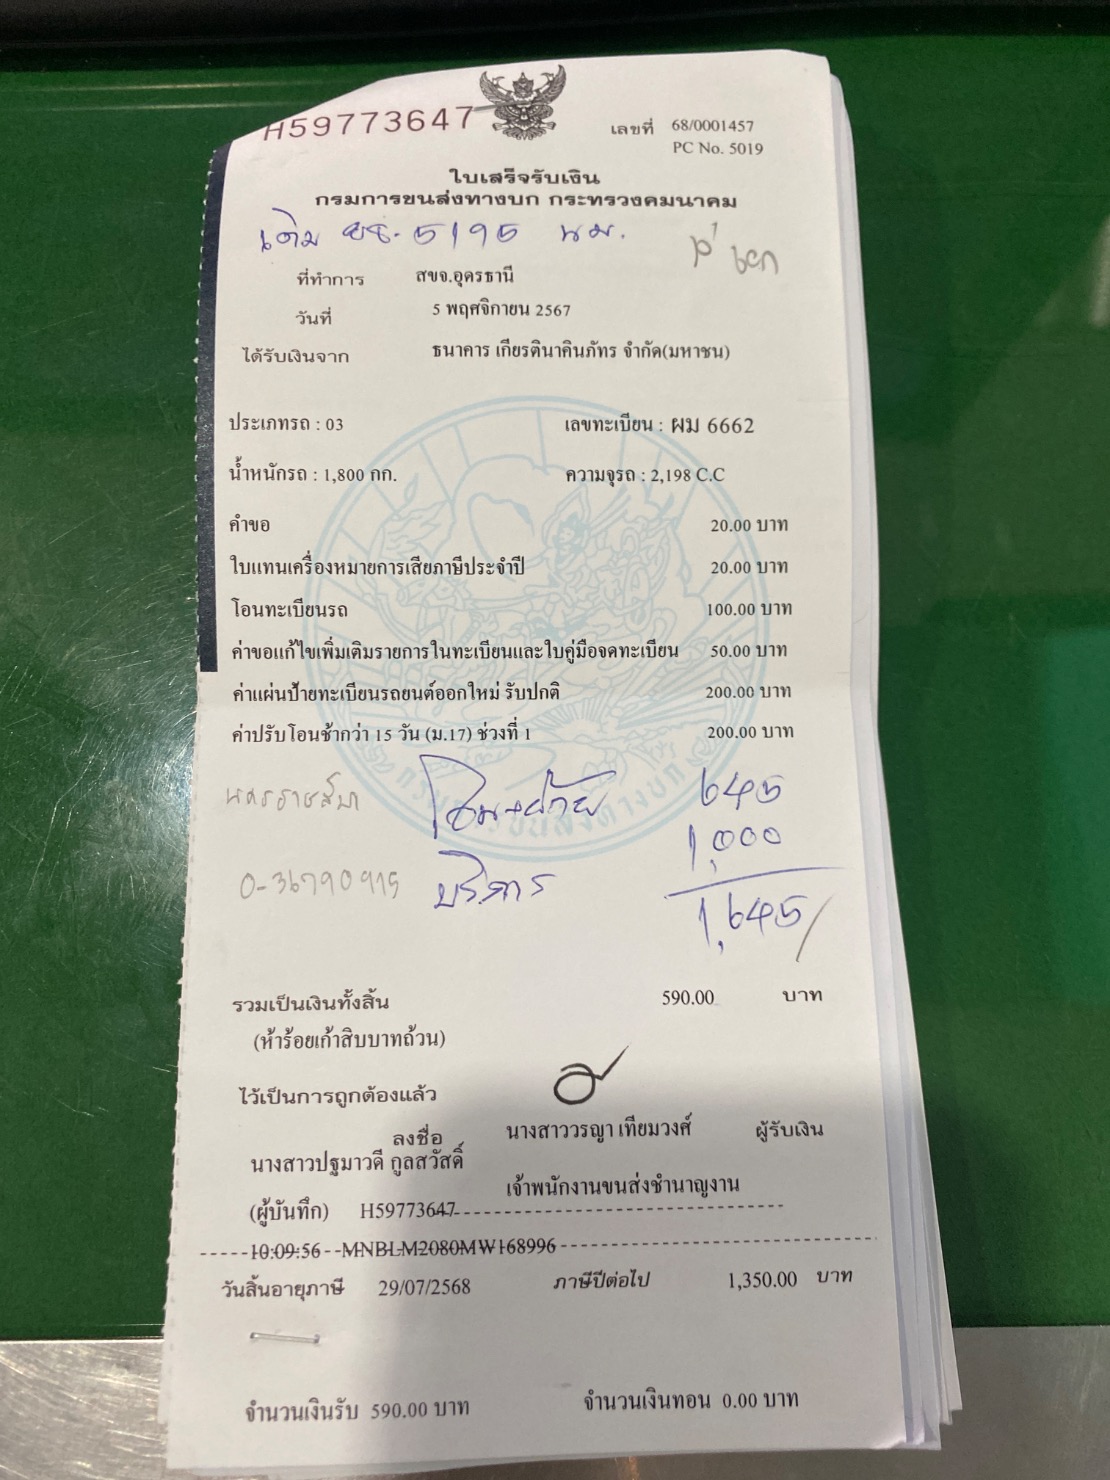 H59773647
เลขที่ 68/0001457
PC No. 5019
ใบเสร็จรับเงิน
กรมการขนส่งทางบก กระทรวงคมนาคม
เดิม 5195 นม.
ที่ทำการ สขจ.อุดรธานี
วันที่ 5 พฤศจิกายน 2567
ได้รับเงินจาก ธนาคาร เกียรตินาคินภัทร จำกัด(มหาชน)
ประเภทรถ : 03 เลขทะเบียน : ผม 6662
น้ำหนักรถ : 1,800 กก. ความจุรถ : 2,198 C.C
คำขอ 20.00 บาท
ใบแทนเครื่องหมายการเสียภาษีประจำปี 20.00 บาท
โอนทะเบียนรถ 100.00 บาท
ค่าขอแก้ไขเพิ่มเติมรายการในทะเบียนและใบคู่มือจดทะเบียน 50.00 บาท
ค่าแผ่นป้ายทะเบียนรถยนต์ออกใหม่ รับปกติ 200.00 บาท
ค่าปรับโอนช้ากว่า 15 วัน (ม.17) ช่วงที่ 1 200.00 บาท
นครราชสีมา 645
1,000
0-36790915 บริการ
1,645/
รวมเป็นเงินทั้งสิ้น 590.00 บาท
(ห้าร้อยเก้าสิบบาทถ้วน)
ไว้เป็นการถูกต้องแล้ว
ลงชื่อ นางสาววรญา เทียมวงศ์ ผู้รับเงิน
นางสาวปฐมาวดี กูลสวัสดิ์
เจ้าพนักงานขนส่งชำนาญงาน
(ผู้บันทึก) H59773647
10:09:56 --MNBLM2080MW168996
วันสิ้นอายุภาษี 29/07/2568 ภาษีปีต่อไป 1,350.00 บาท
จำนวนเงินรับ 590.00 บาท จำนวนเงินทอน 0.00 บาท